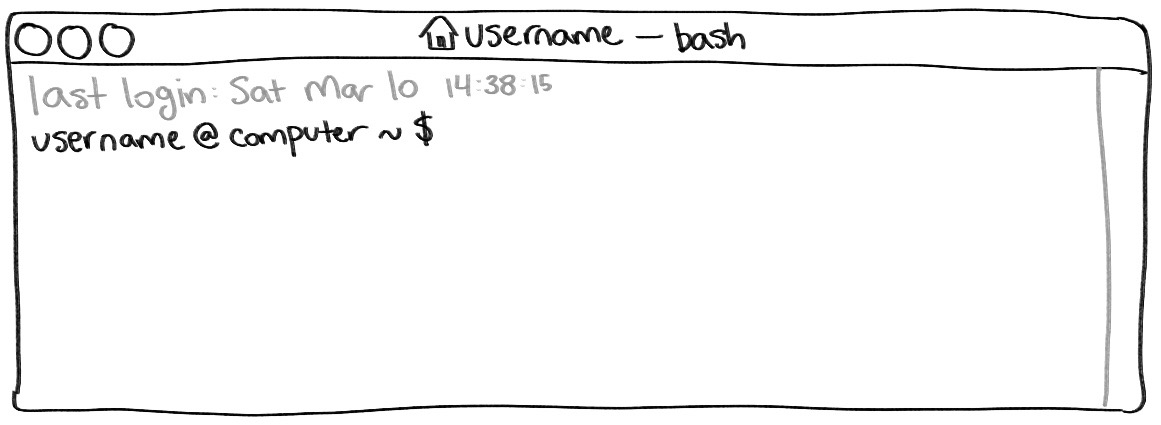 username — bash
last login: Sat Mar 10 14:38:15
username @ computer ~ $